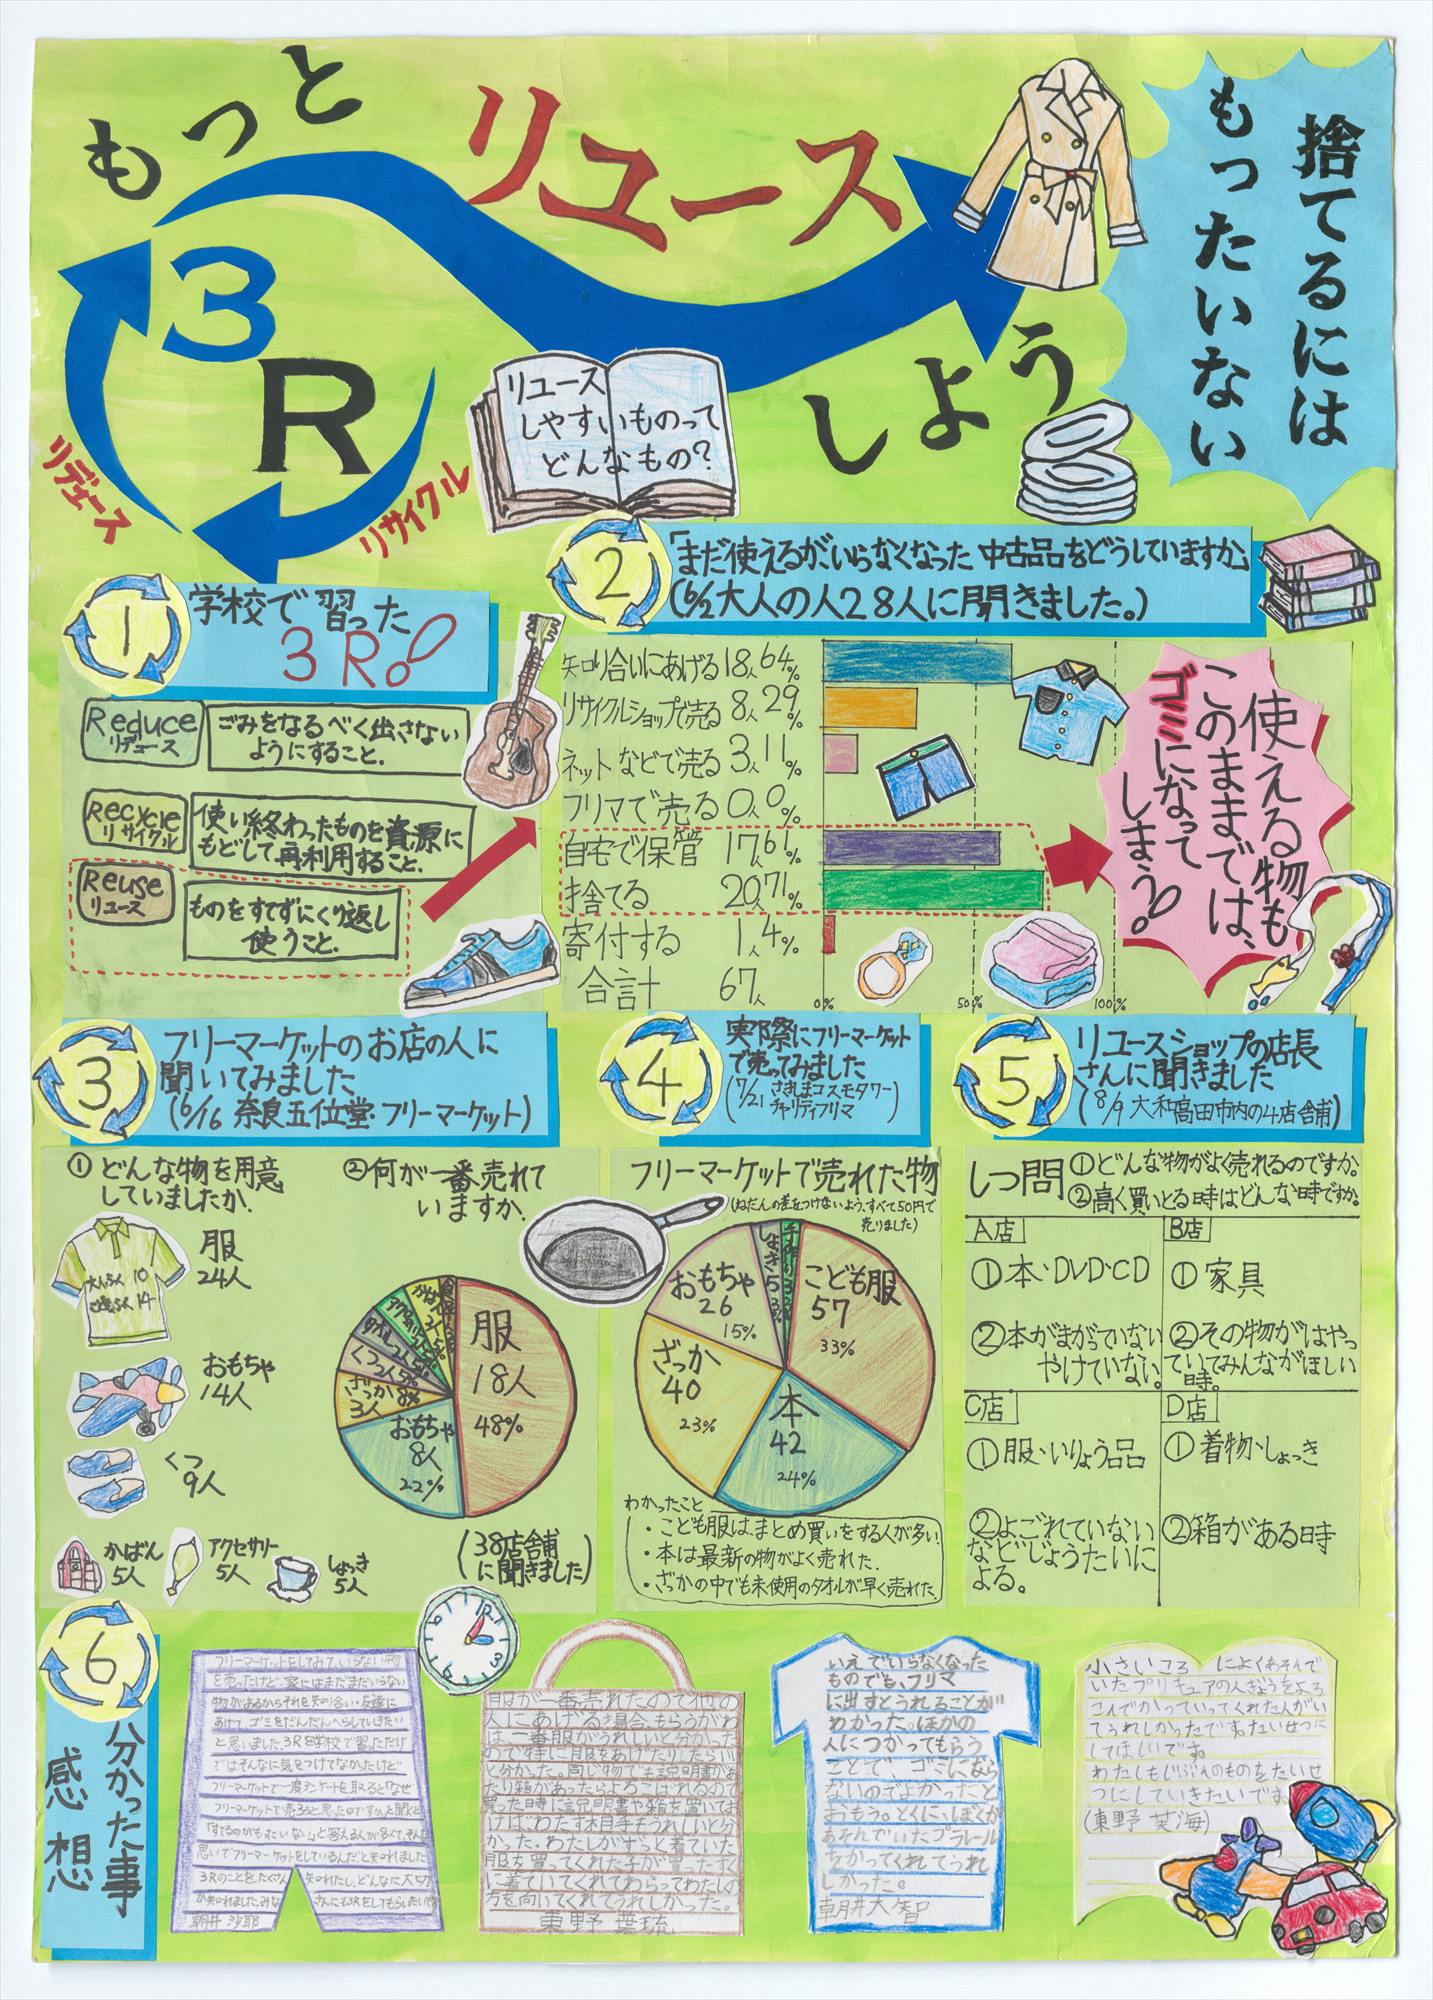 もっと
リユース
しよう
捨てるには
もったいない
3
R
リデュース
リサイクル
リユース
しやすいものって
どんなもの?
1
学校で習った
3R!
Reduce
リデュース
ごみをなるべく出さない
ようにすること.
Recycle
リサイクル
使い終わったものを資源に
もどして再利用すること.
Reuse
リユース
ものをすてずにくり返し
使うこと.
2
「まだ使えるが、いらなくなった中古品をどうしていますか」
(6/2大人の人28人に聞きました。)
知り合いにあげる 18人 64%
リサイクルショップで売る 8人 29%
ネットなどで売る 3人 11%
フリマで売る 0人 0%
自宅で保管 17人 61%
捨てる 20人 71%
寄付する 1人 4%
合計 67人
0% 50% 100%
使える物も
このままでは、
ゴミになって
しまう!
3
フリーマーケットのお店の人に
聞いてみました
(6/16 奈良五位堂・フリーマーケット)
① どんな物を用意
していましたか.
大人ふく 10
子どもふく 14
服
24人
おもちゃ
14人
くつ
9人
かばん
5人
アクセサリー
5人
しょっき
5人
② 何が一番売れて
いますか.
服
18人
48%
おもちゃ
8人
22%
ざっか
3人
8%
くつ 2人 5%
(38店舗
に聞きました)
4
実際にフリーマーケット
で売ってみました
(7/21 さきしまコスモタワー)
チャリティフリマ
フリーマーケットで売れた物
(ねだんの差をつけないよう、すべて50円で
売りました)
こども服
57
33%
本
42
24%
ざっか
40
23%
おもちゃ
26
15%
しょっき 5 3%
手作り 3 2%
わかったこと
・こども服は、まとめ買いをする人が多い.
・本は最新の物がよく売れた.
・ざっかの中でも未使用のタオルが早く売れた.
5
リユースショップの店長
さんに聞きました
(8/9 大和高田市内の4店舗)
しつ問 ①どんな物がよく売れるのですか.
②高く買いとる時はどんな時ですか.
A店
①本・DVD・CD
②本がまがっていない
やけていない.
B店
①家具
②その物がはやっ
ていてみんながほしい
時。
C店
①服・いりょう品
②よごれていない
などじょうたいに
よる。
D店
①着物・しょっき
②箱がある時
6
分かった事
感想
フリーマーケットをしてみて、いらない物
を売ったけど、家にはまだまだいらない
物があるからそれを知り合い・友達に
あげて、ゴミをだんだんへらしていきたい
と思いました。3Rを学校で習っただけ
ではそんなに気をつけてなかったけど
フリーマーケットで一度アンケートを取ると「なぜ
フリーマーケットで売ろうと思ったのですか」と聞くと
「すてるのがもったいない」と答える人が多くて、そんな
思いでフリーマーケットをしているんだと知れました
3Rのことをたくさん知れたし、どんなに大切
か知れました。みなさんにも3Rをしてもらいたいです
朝井 沙耶
服が一番売れたので、他の
人にあげる場合、もらうがわ
は一番服がうれしいと分かった
ので特に服をあげたりしたらいい
と分かった。同じ物でも説明書があっ
たり箱があったらよろこばれるので
買った時に説明書や箱を置いてお
けば、わたす相手もうれしいと分
かった。わたしがずっと着ていた
服を買ってくれた子が買ったすぐ
に着ていてくれてわらってわたしの
方を向いてくれてうれしかった。
東野 葉琉
いえでいらなくなった
ものでも、フリマ
に出すとうれることが
わかった。ほかの
人につかってもらう
ことで、ゴミになら
ないのでよかったと
おもう。とくに、ぼくが
あそんでいたプラレール
をかってくれてうれ
しかった。
朝井大智
小さいころによくあそんで
いたプリキュアの人ぎょうをよろ
こんでかっていってくれた人がい
てうれしかったです。たいせつに
してほしいです。
わたしもじぶんのものをたいせ
つにしていきたいです。
(東野 芙海)